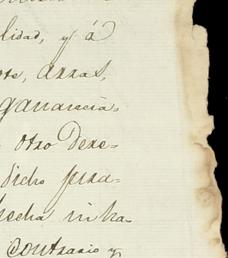 lidad, y á
ote, arras,
ganancia-
otro dere-
dicho pra-
hecha in ha-
contrario y